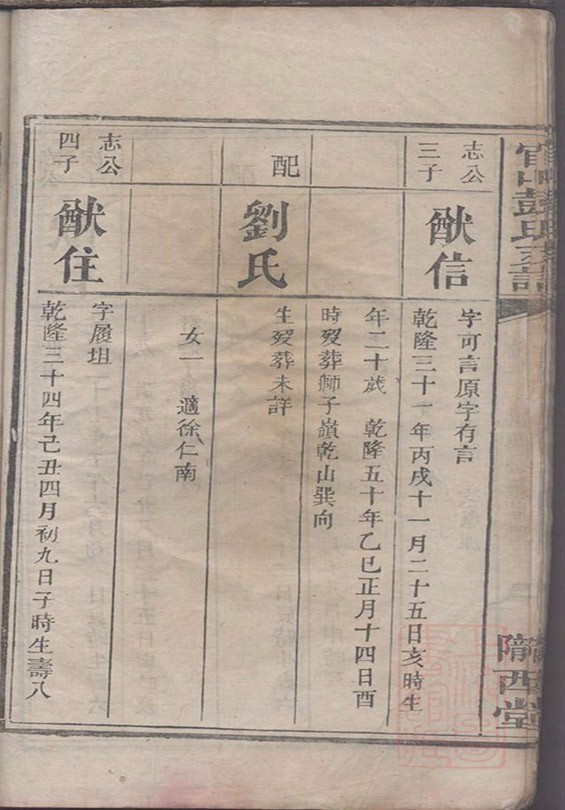 彭氏
隴西堂
志公
三子
猷信
字可言原字有言
乾隆三十一年丙戌十一月二十五日亥時生
年二十歲 乾隆五十年乙巳正月十四日酉
時歿葬獅子嶺乾山巽向
配
劉氏
生歿葬未詳
女一 適徐仁南
志公
四子
猷住
字履坦
乾隆三十四年己丑四月初九日子時生壽八